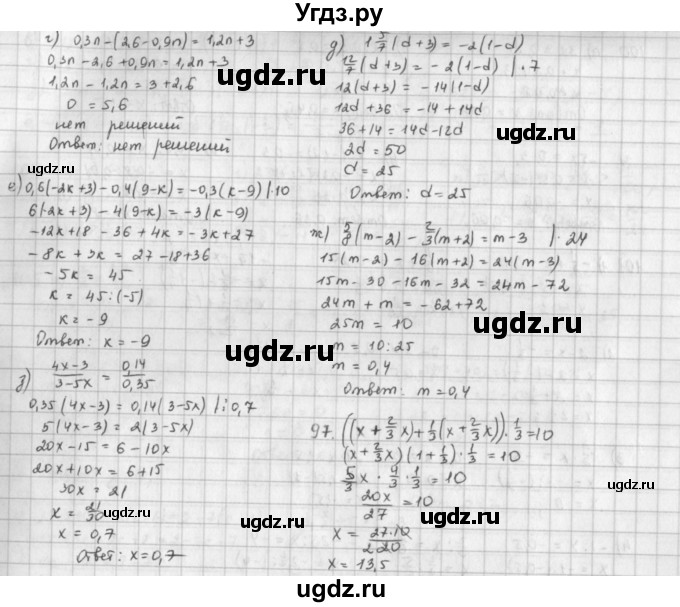 Угдз.ру
г) 0,3n - (2,6 - 0,9n) = 1,2n + 3
0,3n - 2,6 + 0,9n = 1,2n + 3
1,2n - 1,2n = 3 + 2,6
0 = 5,6
нет решений
Ответ: нет решений
д) 1 5/7 (d + 3) = -2(1-d)
12/7 (d + 3) = -2(1-d) | · 7
12(d + 3) = -14(1-d)
12d + 36 = -14 + 14d
36 + 14 = 14d - 12d
2d = 50
d = 25
Ответ: d = 25
е) 0,6(-2к + 3) - 0,4(9-к) = -0,3(к-9) | · 10
6(-2к + 3) - 4(9-к) = -3(к-9)
-12к + 18 - 36 + 4к = -3к + 27
-8к + 3к = 27 - 18 + 36
-5к = 45
к = 45 : (-5)
к = -9
Ответ: к = -9
ж) 5/8 (m-2) - 2/3 (m+2) = m-3 | · 24
15(m-2) - 16(m+2) = 24(m-3)
15m - 30 - 16m - 32 = 24m - 72
24m + m = -62 + 72
25m = 10
m = 10 : 25
m = 0,4
Ответ: m = 0,4
з) (4x-3)/(3-5x) = 0,14/0,35
0,35(4x-3) = 0,14(3-5x) | : 0,7
5(4x-3) = 2(3-5x)
20x - 15 = 6 - 10x
20x + 10x = 6 + 15
30x = 21
x = 21/30
x = 0,7
Ответ: x = 0,7
97. ((x + 2/3 x) + 1/3 (x + 2/3 x)) · 1/3 = 10
(x + 2/3 x)(1 + 1/3) · 1/3 = 10
5/3 x · 4/3 · 1/3 = 10
20x/27 = 10
x = 27·10/20
x = 13,5
ugdz.ru
ugdz.ru
ugdz.ru
ugdz.ru
ugdz.ru
ugdz.ru
ugdz.ru
ugdz.ru
ugdz.ru
ugdz.ru
ugdz.ru
ugdz.ru